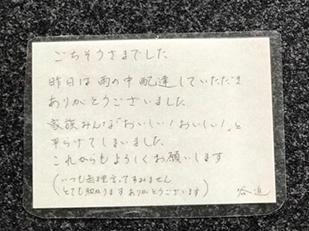 ごちそうさまでした
昨日は雨の中配達していただき
ありがとうございました
家族みんな"おいしい!おいしい!"と
平らげてしまいました
これからもよろしくお願いします
(いつも無理言ってすみません
とても助かります ありがとうございます)